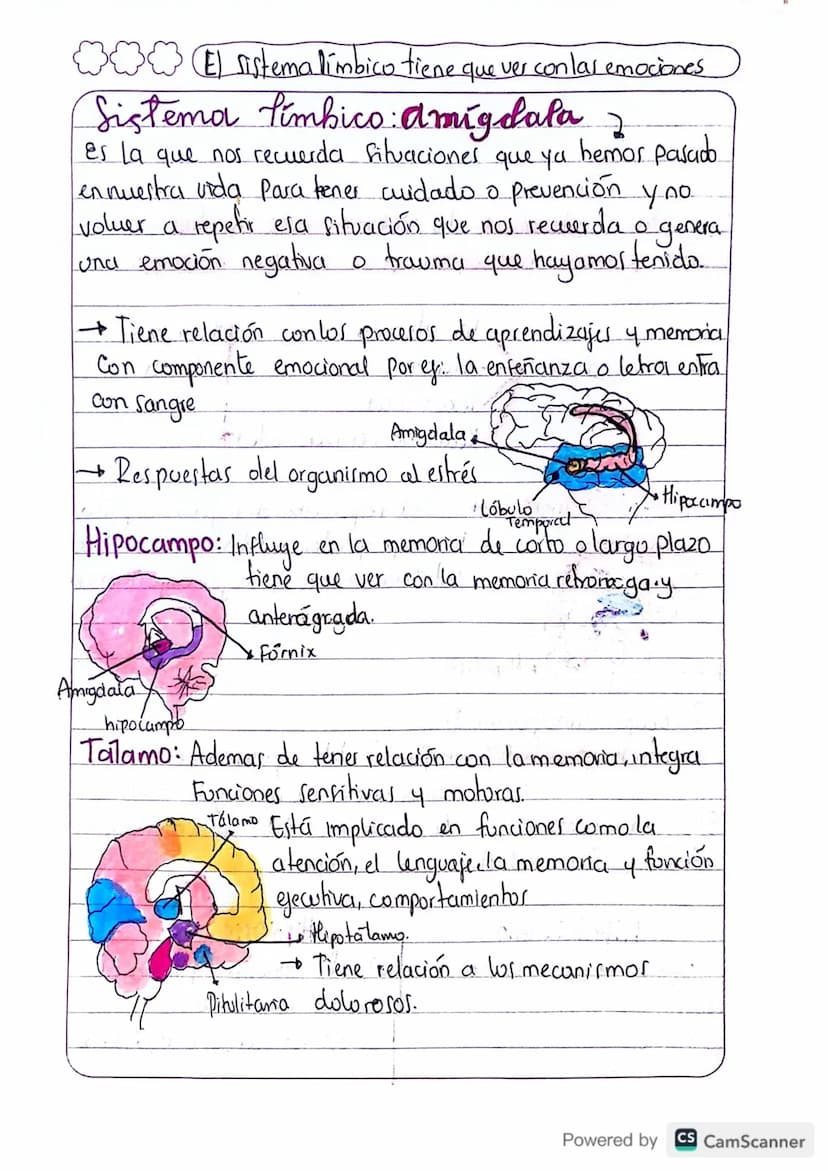 El sistema límbico tiene que ver con las emociones
Sistema límbico: amígdala
es la que nos recuerda situaciones que ya hemos pasado
en nuestra vida para tener cuidado o prevención y no
volver a repetir esa situación que nos recuerda o genera
una emoción negativa o trauma que hayamos tenido.
→ Tiene relación con los procesos de aprendizajes y memoria
Con componente emocional por ej: la enseñanza o letra entra
con sangre
Amigdala
→ Respuestas del organismo al estrés
Hipocampo
Lóbulo
Temporal
Hipocampo: Influye en la memoria de corto o largo plazo
tiene que ver con la memoria retrorograga y
anterágrada.
Fórnix
Amigdala
hipocampo
Tálamo: Ademas de tener relación con la memoria, integra
Funciones sensitivas y motoras.
Tálamo
Está implicado en funciones como la
atención, el lenguaje, la memoria y función
ejecutiva, comportamientos
Hipotálamo.
→ Tiene relación a los mecanismos
Pituitaria dolorosos.
Powered by CS CamScanner